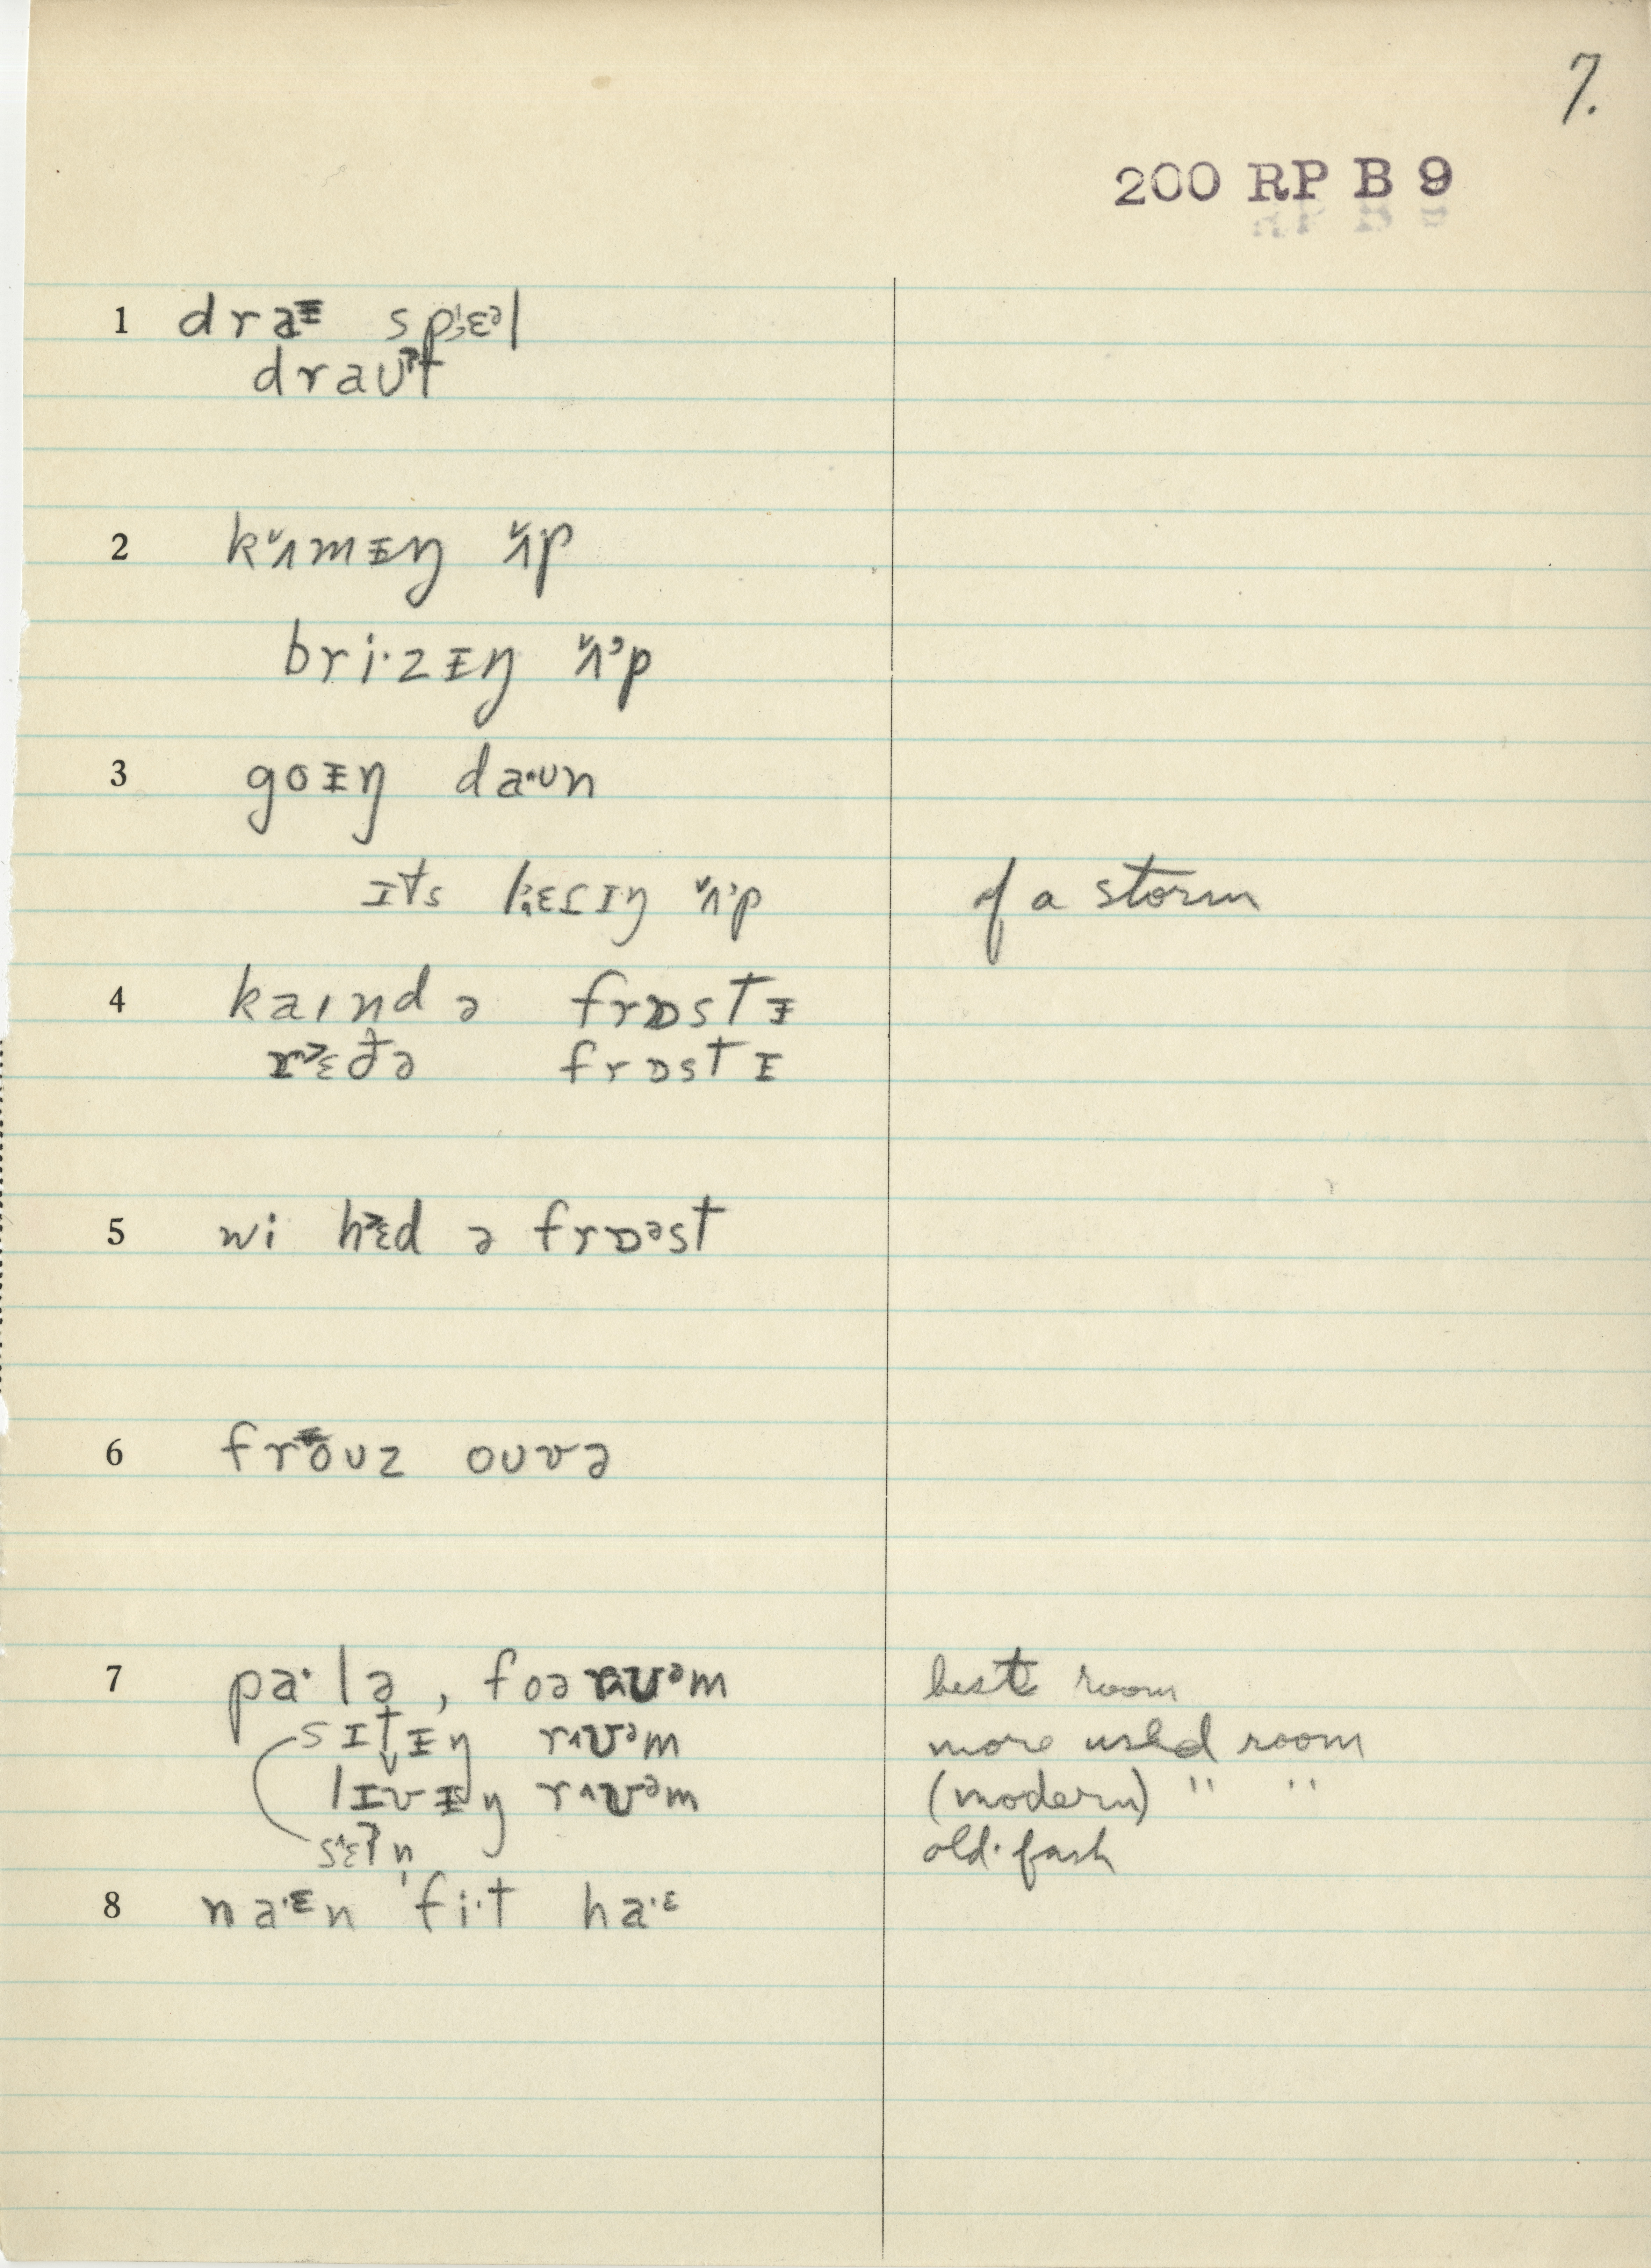 7.
200 RP B 9
1 draᵻ spɛᵊl
draʊˀt
2 kʌ̌mᵻŋ ʌ̌p
bri·zᵻŋ ʌ̌ᵊp
3 goᵻŋ da·ʊn
ɪts ʌ̌ᵊp of a storm
4 kaɪnd ə frɒstᵻ
frɒstᵻ
5 wi hɛd ə frɒᵊst
6 froʊz oʊvə
7 pa·lə, foə rʊᵊm best room
sɪt̬ᵻŋ rʊᵊm more used room
lɪvᵻŋ rʊᵊm (modern) " "
sɛʔn̩ old-fash
8 na·ᵋn 'fi·t ha·ᵋ